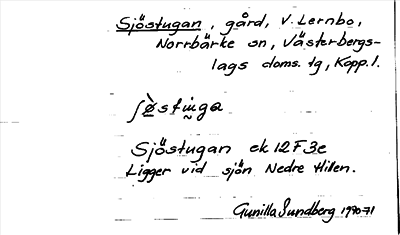 Sjöstugan, gård, V. Lernbo,
Norrbärke sn, Västerbergs-
lags doms. tg, Kopp. l.
Sjöstugan ek 12F3e
Ligger vid sjön Nedre Hillen.
Gunilla Sundberg 1970-71